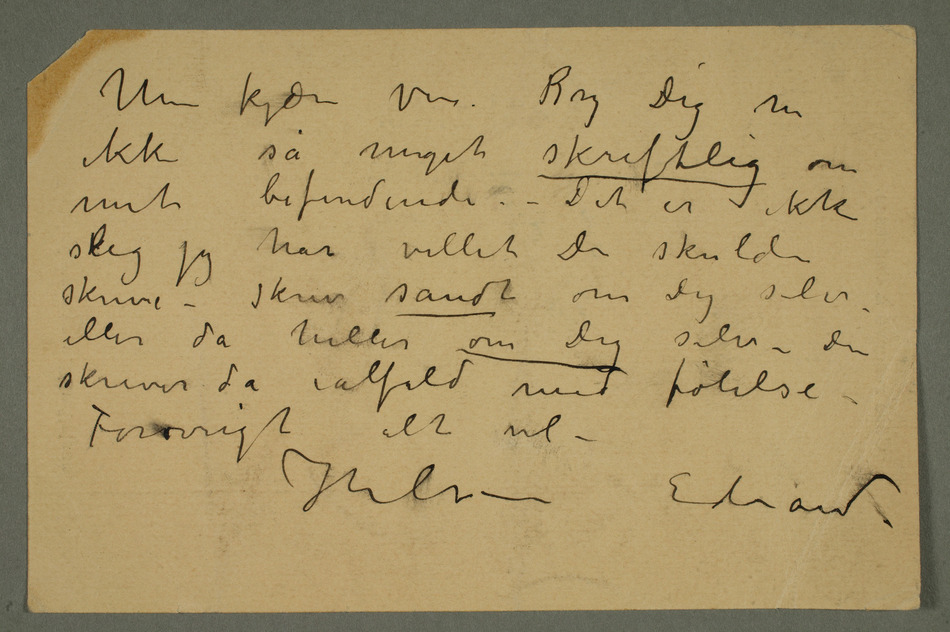 Min kjære ven. Bry Dig nu
ikke så meget skriftlig om
mit befindende. – Det er ikke
slig jeg har villet Du skulde
skrive – skriv sandt om Dig selv
eller da heller om Dig selv – Du
skriver da ialfald med følelse –
Forøvrigt alt vel –
Hilsen Edvard.